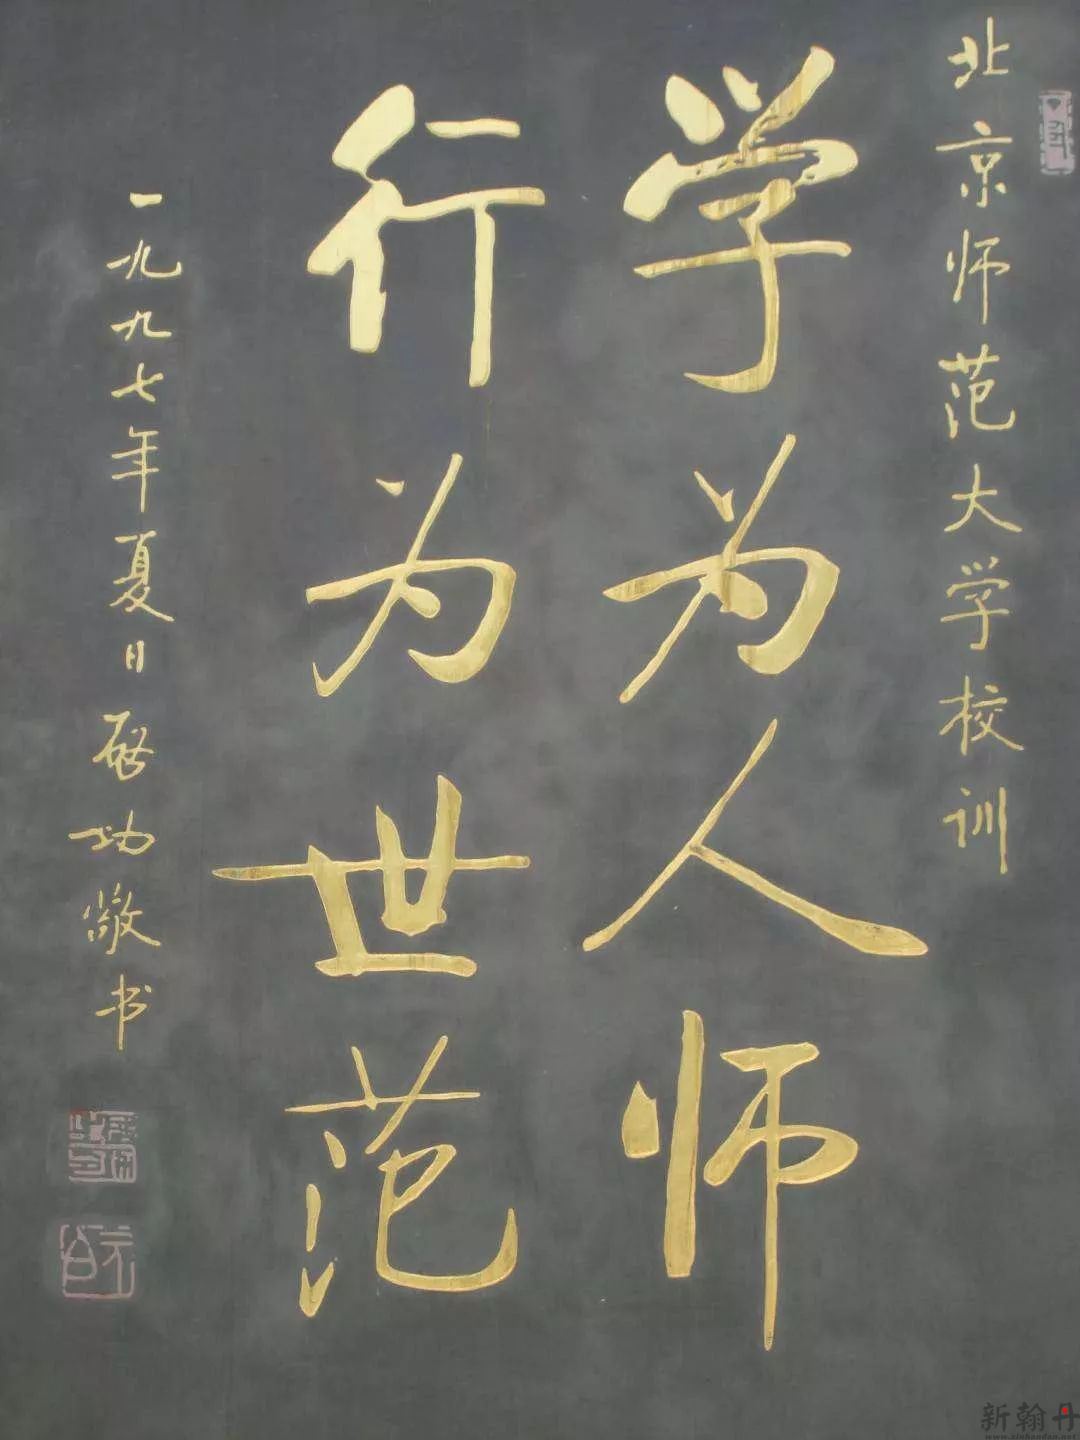 北京师范大学校训
学为人师
行为世范
一九九七年夏日启功敬书
新翰丹
www.xinhandan.net